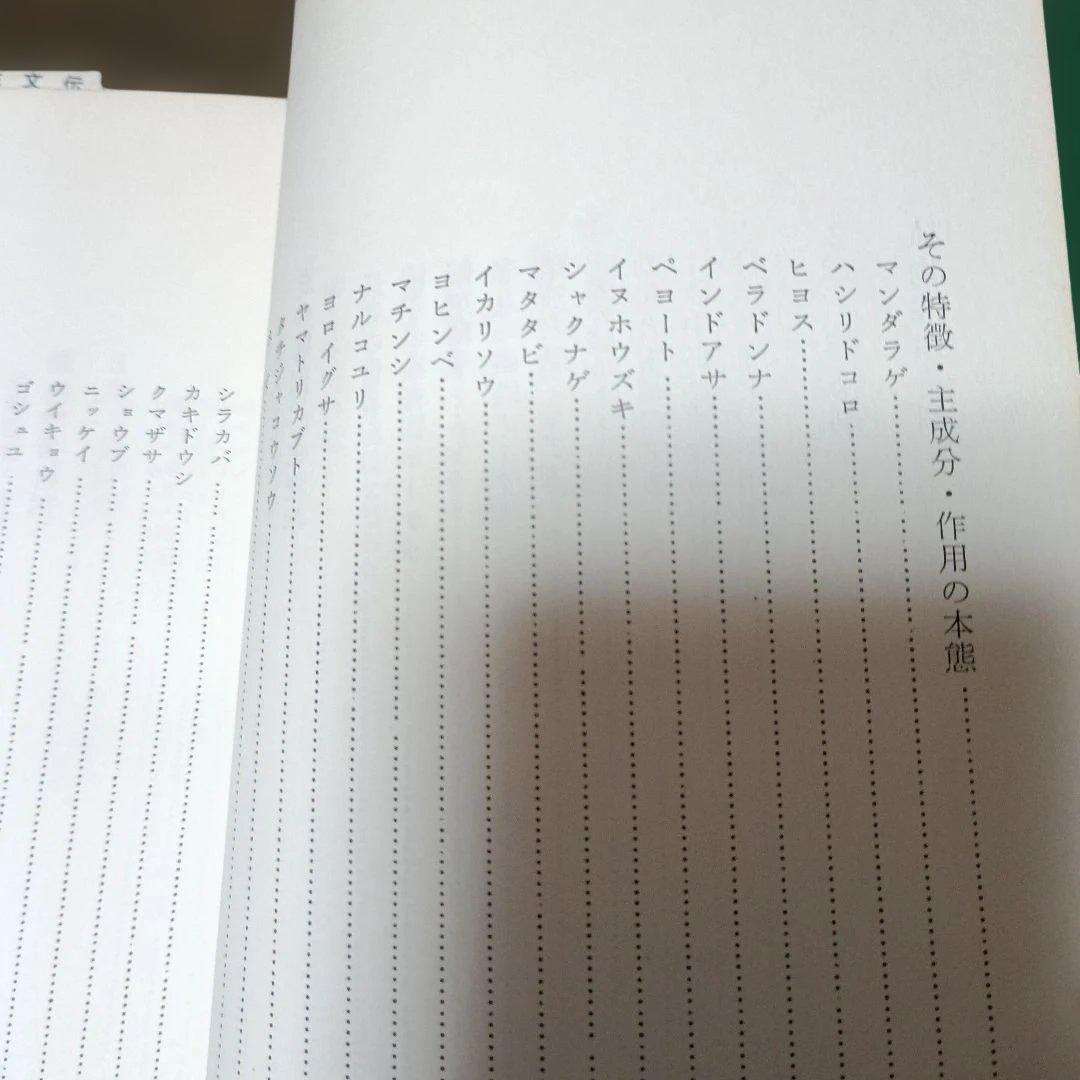 その特徴・主成分・作用の本態
マンダラゲ
ハシリドコロ
ヒヨス
ベラドンナ
インドアサ
ペヨート
イヌホウズキ
シャクナゲ
マタタビ
イカリソウ
ヨヒンベ
マチンシ
ナルコユリ
ヨロイグサ
ヤマトリカブト
タチジャコウソウ
シラカバ
カキドウシ
クマザサ
ショウブ
ニッケイ
ウイキョウ
ゴシュユ